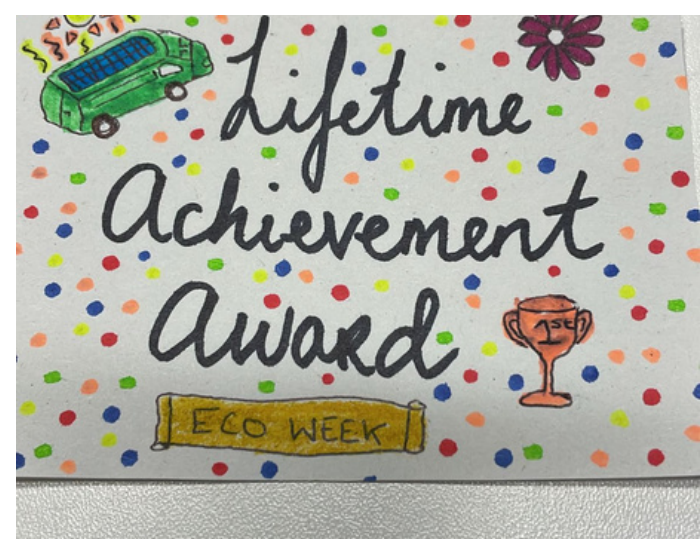 Lifetime
Achievement
Award
1st
ECO WEEK